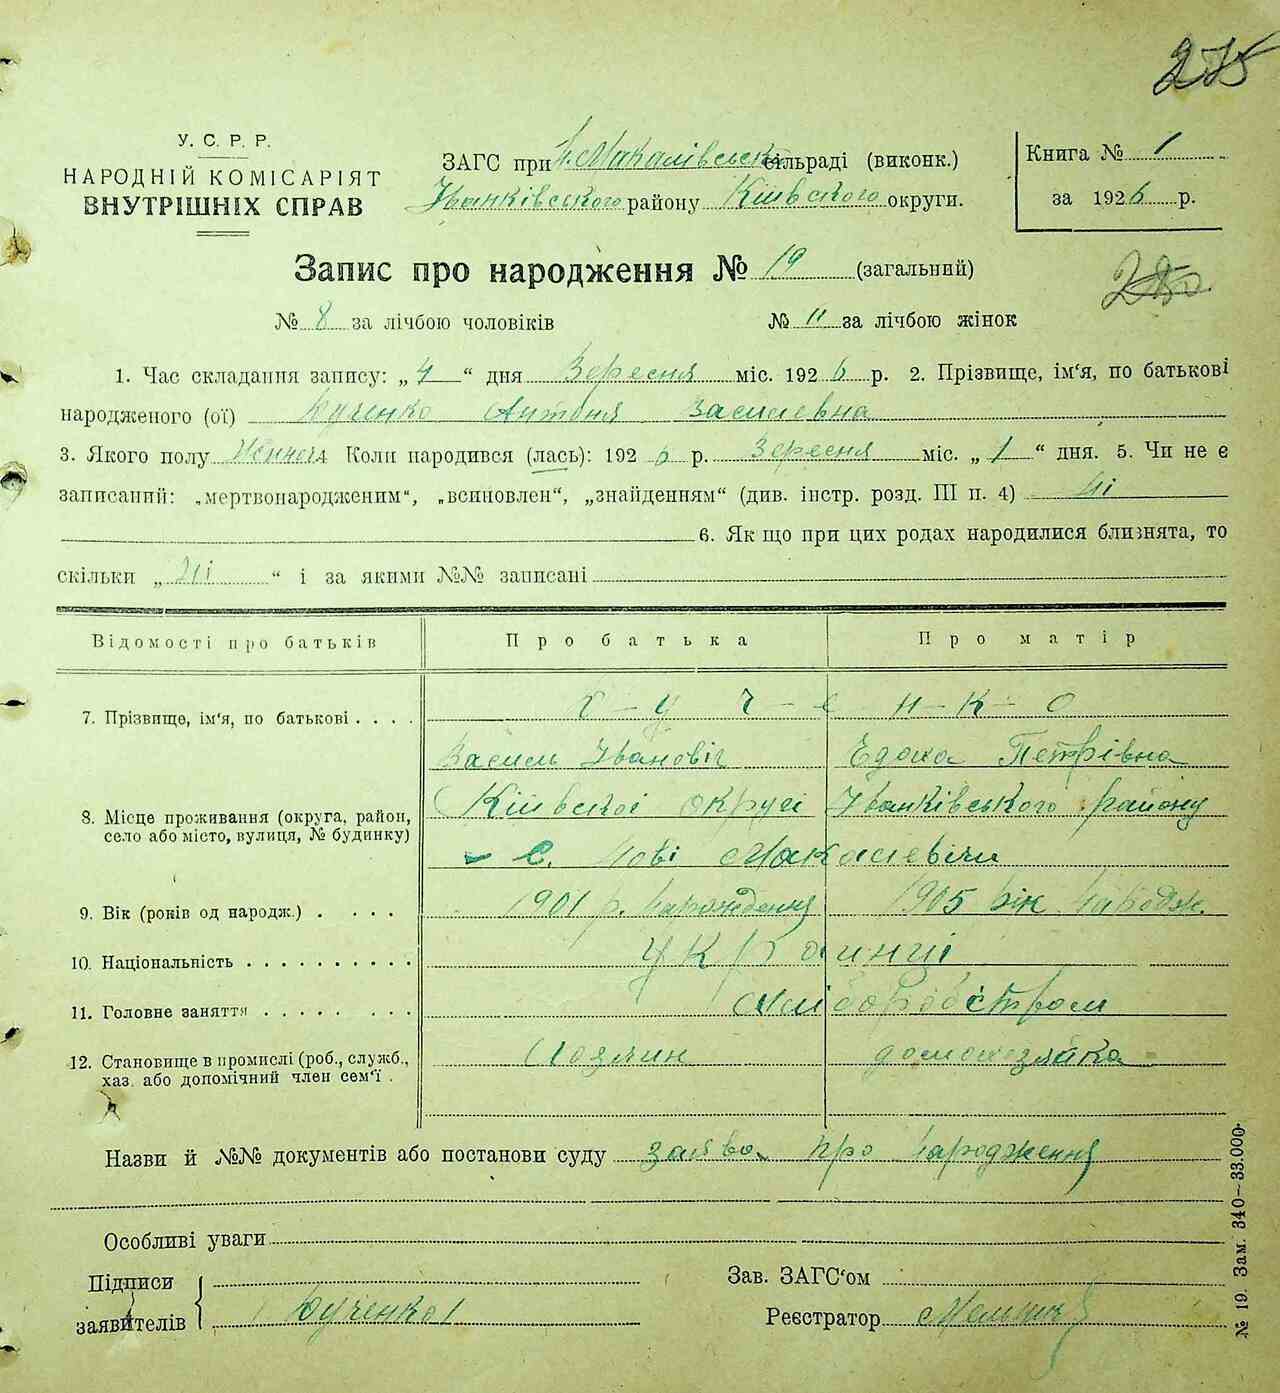 275
У. С. Р. Р.
НАРОДНІЙ КОМІСАРІЯТ
ВНУТРІШНІХ СПРАВ
ЗАГС при Н. Макалівській сільраді (виконк.)
Іванківського району Київского округи.
Книга № 1
за 1926 р.
Запис про народження № 19 (загальний)
№ 8 за лічбою чоловіків № 11 за лічбою жінок
1. Час складання запису: „4“ дня Вересня міс. 1926 р. 2. Прізвище, ім'я, по батькові
народженого (ої) Антоня Василевна
3. Якого полу Женчог 4 Коли народився (лась): 1926 р. Вересня міс. „1“ дня. 5. Чи не є
записаний: „мертвонародженим“, „всиновлен“, „знайденням“ (див. інстр. розд. III п. 4) Ні
6. Як що при цих родах народилися близнята, то
скільки „Ні“ і за якими №№ записані
Відомості про батьків Про батька Про матір
7. Прізвище, ім'я, по батькові . . . . У-ч-е-н-к-о
Василь Івановіч Едока Петрівна
8. Місце проживання (округа, район, Київскоі округі Іванківського району
село або місто, вулиця, № будинку) с. Нові Макалевичи
9. Вік (років од народж.) . . . . 1901 р. Народження 1905 рік Народж.
10. Національність . . . . . . . . . . Украинці
11. Головне заняття . . . . . . . . Хліборобством
12. Становище в промислі (роб., служб., Хозяин домохозяйка
хаз. або допомічний член сем'ї .
Назви й №№ документів або постанови суду заява про народження
Особливі уваги
Підписи
заявителів
Зав. ЗАГС'ом
Реєстратор
№ 19. Зам. 340—33.000